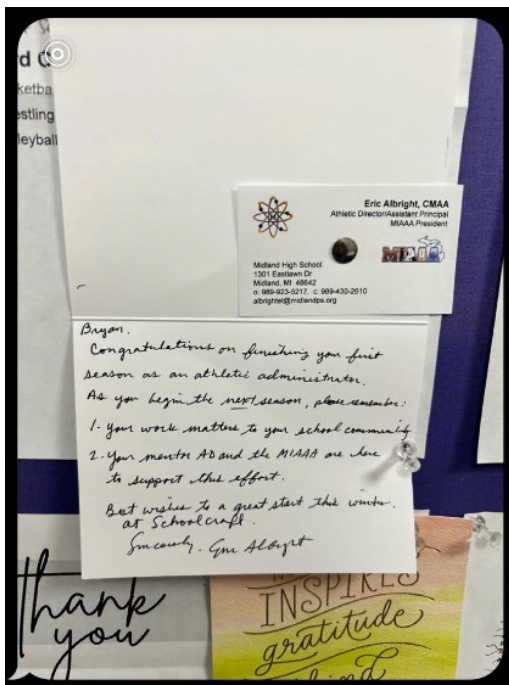 rd C
ketba
estling
leyball
Eric Albright, CMAA
Athletic Director/Assistant Principal
MIAAA President
MIAAA
Midland High School
1301 Eastlawn Dr
Midland, MI 48642
o: 989-923-5217, c: 989-430-2610
albrightel@midlandps.org
Bryan,
Congratulations on finishing your first
season as an athletic administrator.
As you begin the next season, please remember:
1- your work matters to your school community
2- your mentor AD and the MIAAA are here
to support this effort.
Best wishes to a great start this winter
at Schoolcraft.
Sincerely, Eric Albright
thank
you
INSPIRES
gratitude